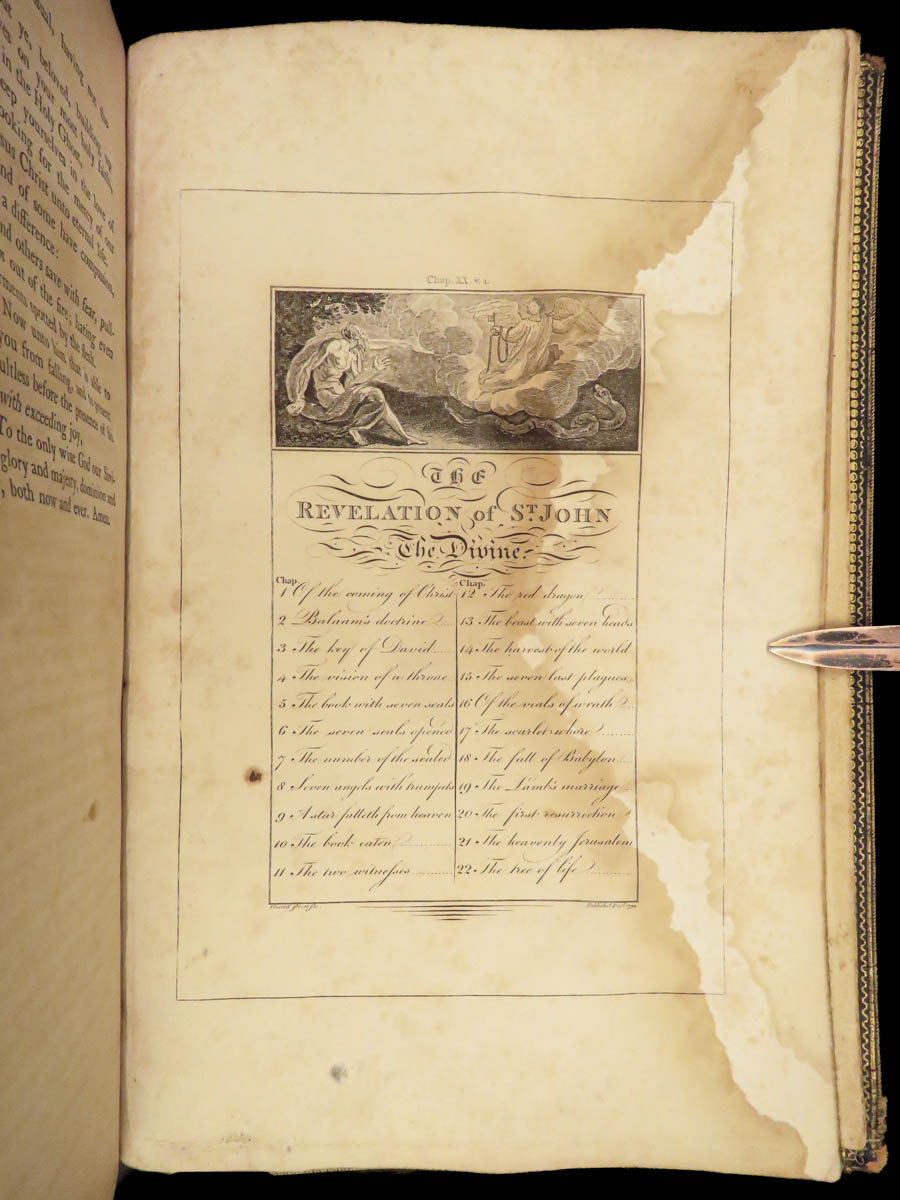 sual, having not the
ut ye, beloved, building up
ves on your most holy faith,
in the Holy Ghost,
eep yourselves in the love of
ooking for the mercy of our
sus Christ unto eternal life.
nd of some have compassion,
a difference:
nd others save with fear, pull-
m out of the fire; hating even
rments spotted by the flesh.
Now unto him that is able to
you from falling, and to present
ultless before the presence of his
with exceeding joy,
To the only wise God our Savi-
glory and majesty, dominion and
, both now and ever. Amen.
Chap. XX. v. 1.
THE
REVELATION of ST. JOHN
The Divine.
Chap.
1 Of the coming of Christ
2 Balaam's doctrine
3 The key of David
4 The vision of a throne
5 The book with seven seals
6 The seven seals opened
7 The number of the sealed
8 Seven angels with trumpets
9 A star falleth from heaven
10 The book eaten
11 The two witnesses
Chap.
12 The red dragon
13 The beast with seven heads
14 The harvest of the world
15 The seven last plagues
16 Of the vials of wrath
17 The scarlet whore
18 The fall of Babylon
19 The Lamb's marriage
20 The first resurrection
21 The heavenly Jerusalem
22 The tree of life
Published